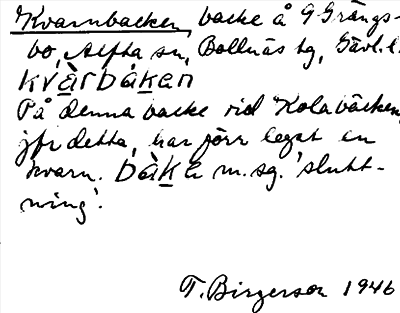 Kvarnbacken, backe å G Grängs-
bo, Alfta sn, Bollnäs tg, Gävl. l.
kvàrbákan
På denna backe vid Kolabäcken,
jfr detta, har förr legat en
kvarn. bàkɑ m. sg. 'slutt-
ning'.
T. Birgerson 1946